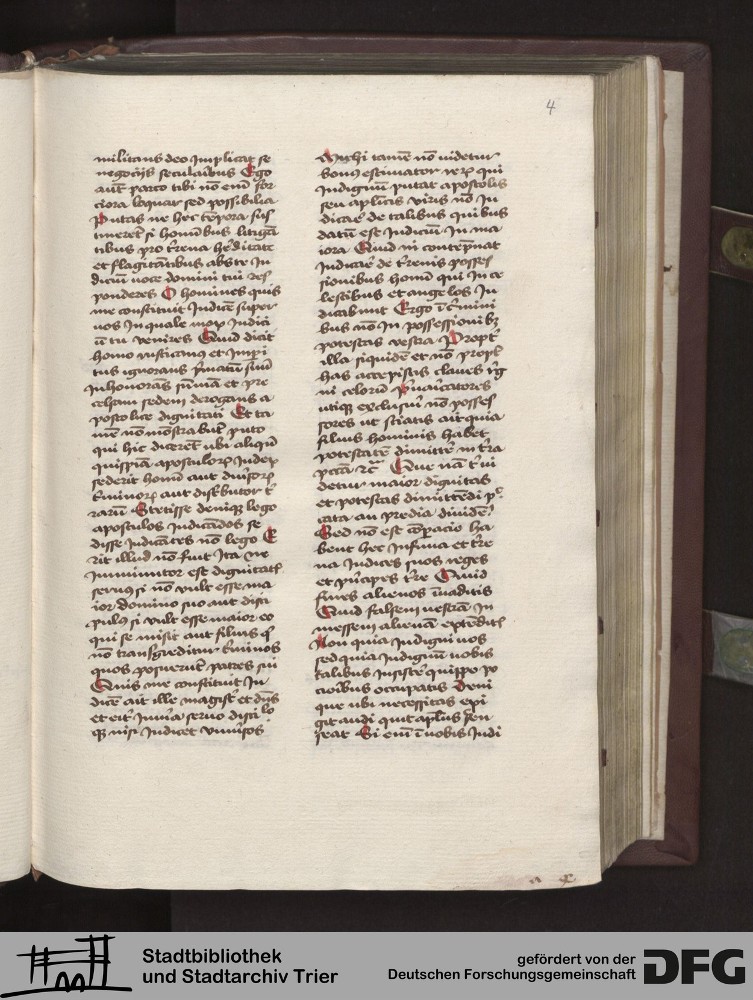 4
militans deo Implicat se
negocijs secularibus Ego
aut parco tibi no em for
ciora loquar sed possibilia
Putas ne hec tepora sus
tineret si hominibus litiga
tibus pro trena hereditate
et flagitatibus abs te Iu
dicium voce domini tui res
ponderes O homines quis
me constituit Iudice super
vos In quale mox Iudici
u tu venires Quid dicit
homo rusticanus et Imperi
tus ignorans primatum suum
Inhonorans summa et pre
celsam sedem derogans a
postolice dignitati Et ta
me no monstrabut puto
qui hic diceret ubi aliqu
quispia apostolorum Iudex
sederit homi aut divisor
terminorum aut distributor t
rarum Stetisse deniq lego
apostolos Iudicados se
disse Iudicates no lego E
rit illud no fuit Ita ne
Imminutor est dignitatis
servus si no vult esse ma
ior domino suo aut disci
pulus si vult esse maior eo
qui se misit aut filius si
no transgreditur terminos
quos posuerut patres sui
Quis me constituit Iu
dice ait ille magister et dns
et erit Iniuria servo disci
lo q nisi Iudicet universos
Michi tame no videtur
bonus estimator rerum qui
Indignum putat apostolis
seu aplicis viris no Iu
dicare de talibus quibus
datu est Iudiciu In ma
iora Quid ni contepnat
Iudicare de trenis posses
sionibus homi qui In ce
lestibus et angelos Iu
dicabunt Ergo i crimini
bus no In possessionibus
potestas vestra Propter
illa siquide et no propter
has accepistis claves reg
ni celorum Pvaricatores
utiq exclusuri no posses
sores ut sciatis ait quia
filius hominis habet
potestate dimittere in tra
pcca rc Que na t vi
detur maior dignitas
et potestas dimittedi p
ccata an predia dividedi
Sed no est coparacio ha
bent hec Infima et tre
na Iudices suos reges
et principes tre Quid
fines alienos invaditis
Quid falcem vestra In
messem aliena extenditis
Non quia Indigni vos
sed quia Indignum vobis
talibus Insistere quippe po
cioribus occupatis Deni
que ubi necessitas exi
git audi quit aplus sen
seat Si em i vobis Iudi
Stadtbibliothek
und Stadtarchiv Trier
gefördert von der
Deutschen Forschungsgemeinschaft
DFG